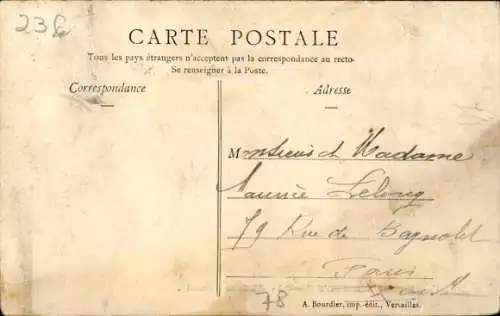 236
CARTE POSTALE
Tous les pays étrangers n'acceptent pas la correspondance au recto-
Se renseigner à la Poste.
Correspondance
Adresse
Monsieur et Madame
Maurice Lelong
79 Rue de Bagnolet
Paris
78
A. Bourdier, imp.-édit., Versailles.